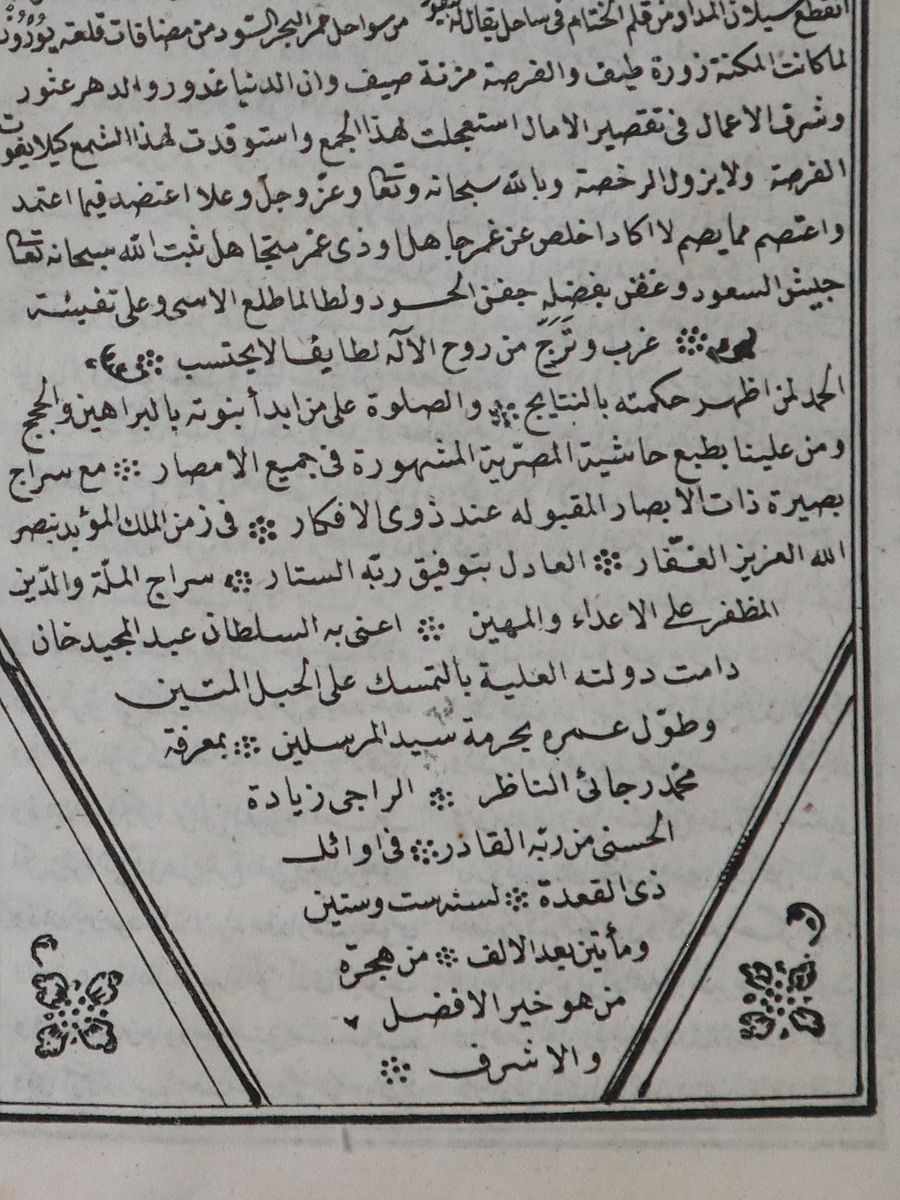 انقطع سيلان المداد من قلم الختام فى ساحل يقال له من سواحل حمر البحر السود من مضافات قلعه
لما كانت المكنة زورة طيف والفرصة مزنة صيف وان الدنيا غدور والدهر عثور
وشرف الاعمال فى تقصير الامال استعجلت لهذا الجمع واستوقدت لهذا الشمع كيلا يفوت
الفرصة ولا يزول الرخصة وبالله سبحانه وتعا وعز وجل وعلا اعتضد فيما اعتمد
واعتصم مما يصم لا اكاد اخلص عن غمر جاهل او ذى غمر متجاهل ثبت الله سبحانه تعا
جيش السعود وغض بفضله جفن الحسود ولطالما طلع الاسى وعلى تفيئته
غرب وترج من روح الآله لطايفا لا يحتسب
الحمد لمن اظهر حكمته بالنتايج والصلوة على من ابد أ بنوته بالبراهين والحجج
ومن علينا بطبع حاشية المصرية المشهورة فى جميع الامصار مع سراج
بصيرة ذات الابصار المقبوله عند ذوى الافكار فى زمن الملك المؤيد بنصر
الله العزيز الغفّار العادل بتوفيق ربّه الستار سراج الملّة والدّين
المظفر على الاعداء والمهين اعنى به السلطان عبد المجيد خان
دامت دولته العلية بالتمسك على الحبل المتين
وطوّل عمره بحرمة سيد المرسلين بمعرفة
محمد رجائى الناظر الراجى زيادة
الحسنى من ربّه القادر فى اوائل
ذى القعدة لسنه ست وستين
ومأتين بعد الالف من هجرة
من هو خير الافضل
والاشرف